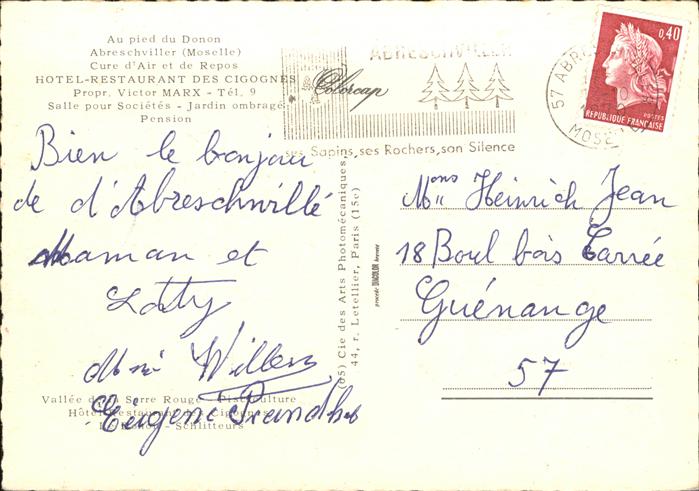 Au pied du Donon
Abreschviller (Moselle)
Cure d'Air et de Repos
HOTEL-RESTAURANT DES CIGOGNES
Propr. Victor MARX - Tél. 9
Salle pour Sociétés - Jardin ombragé
Pension
ABRESCHVILLER
Colorcap
ses Sapins, ses Rochers, son Silence
57 ABRES
MOSELLE
0,40
POSTES
REPUBLIQUE FRANÇAISE
Bien le bonjou
de d'Abreschvillé
Maman et
Willem
Eugene
Vallée de la Sarre Rouge - Pisciculture
Hôtel-Restaurant des Cigognes
Le Donon - Schlitteurs
(05) Cie des Arts Photomécaniques,
44, r. Letellier, Paris (15e)
procédé DIACOLOR breveté
Mons Heinrich Jean
18 Boul bois Carrée
Guénange
57